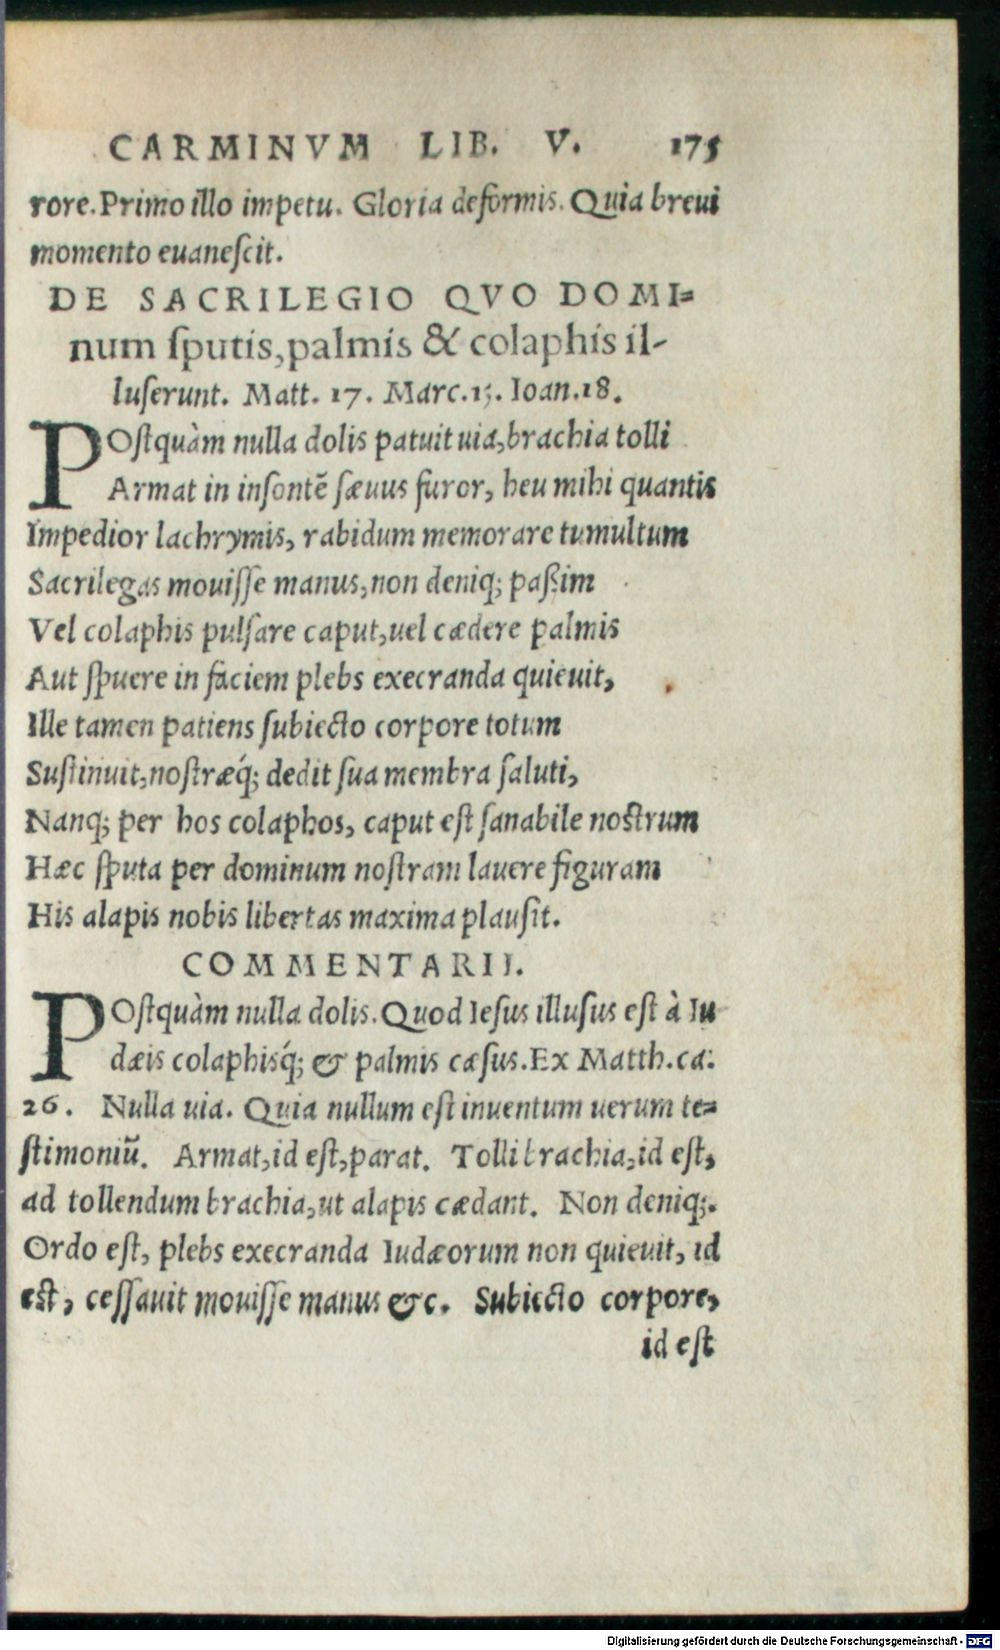 CARMINVM LIB. V. 175
rore. Primo illo impetu. Gloria deformis. Quia breui
momento euanescit.
DE SACRILEGIO QVO DOMI-
num sputis, palmis & colaphis il-
luserunt. Matt. 17. Marc. 15. Ioan. 18.
POstquàm nulla dolis patuit uia, brachia tolli
Armat in insontē sæuus furor, heu mihi quantis
Impedior lachrymis, rabidum memorare tumultum
Sacrilegas mouisse manus, non deniq; paßim
Vel colaphis pulsare caput, uel cædere palmis
Aut spuere in faciem plebs execranda quieuit,
Ille tamen patiens subiecto corpore totum
Sustinuit, nostræq́; dedit sua membra saluti,
Nanq; per hos colaphos, caput est sanabile nostrum
Hæc sputa per dominum nostram lauere figuram
His alapis nobis libertas maxima plausit.
COMMENTARII.
POstquàm nulla dolis. Quod Iesus illusus est à Iu
dæis colaphisq́; & palmis cæsus. Ex Matth. ca.
26. Nulla uia. Quia nullum est inuentum uerum te-
stimoniū. Armat, id est, parat. Tolli brachia, id est,
ad tollendum brachia, ut alapis cædant. Non deniq;.
Ordo est, plebs execranda Iudæorum non quieuit, id
est, cessauit mouisse manus &c. Subiecto corpore,
id est
Digitalisierung gefördert durch die Deutsche Forschungsgemeinschaft - DFG